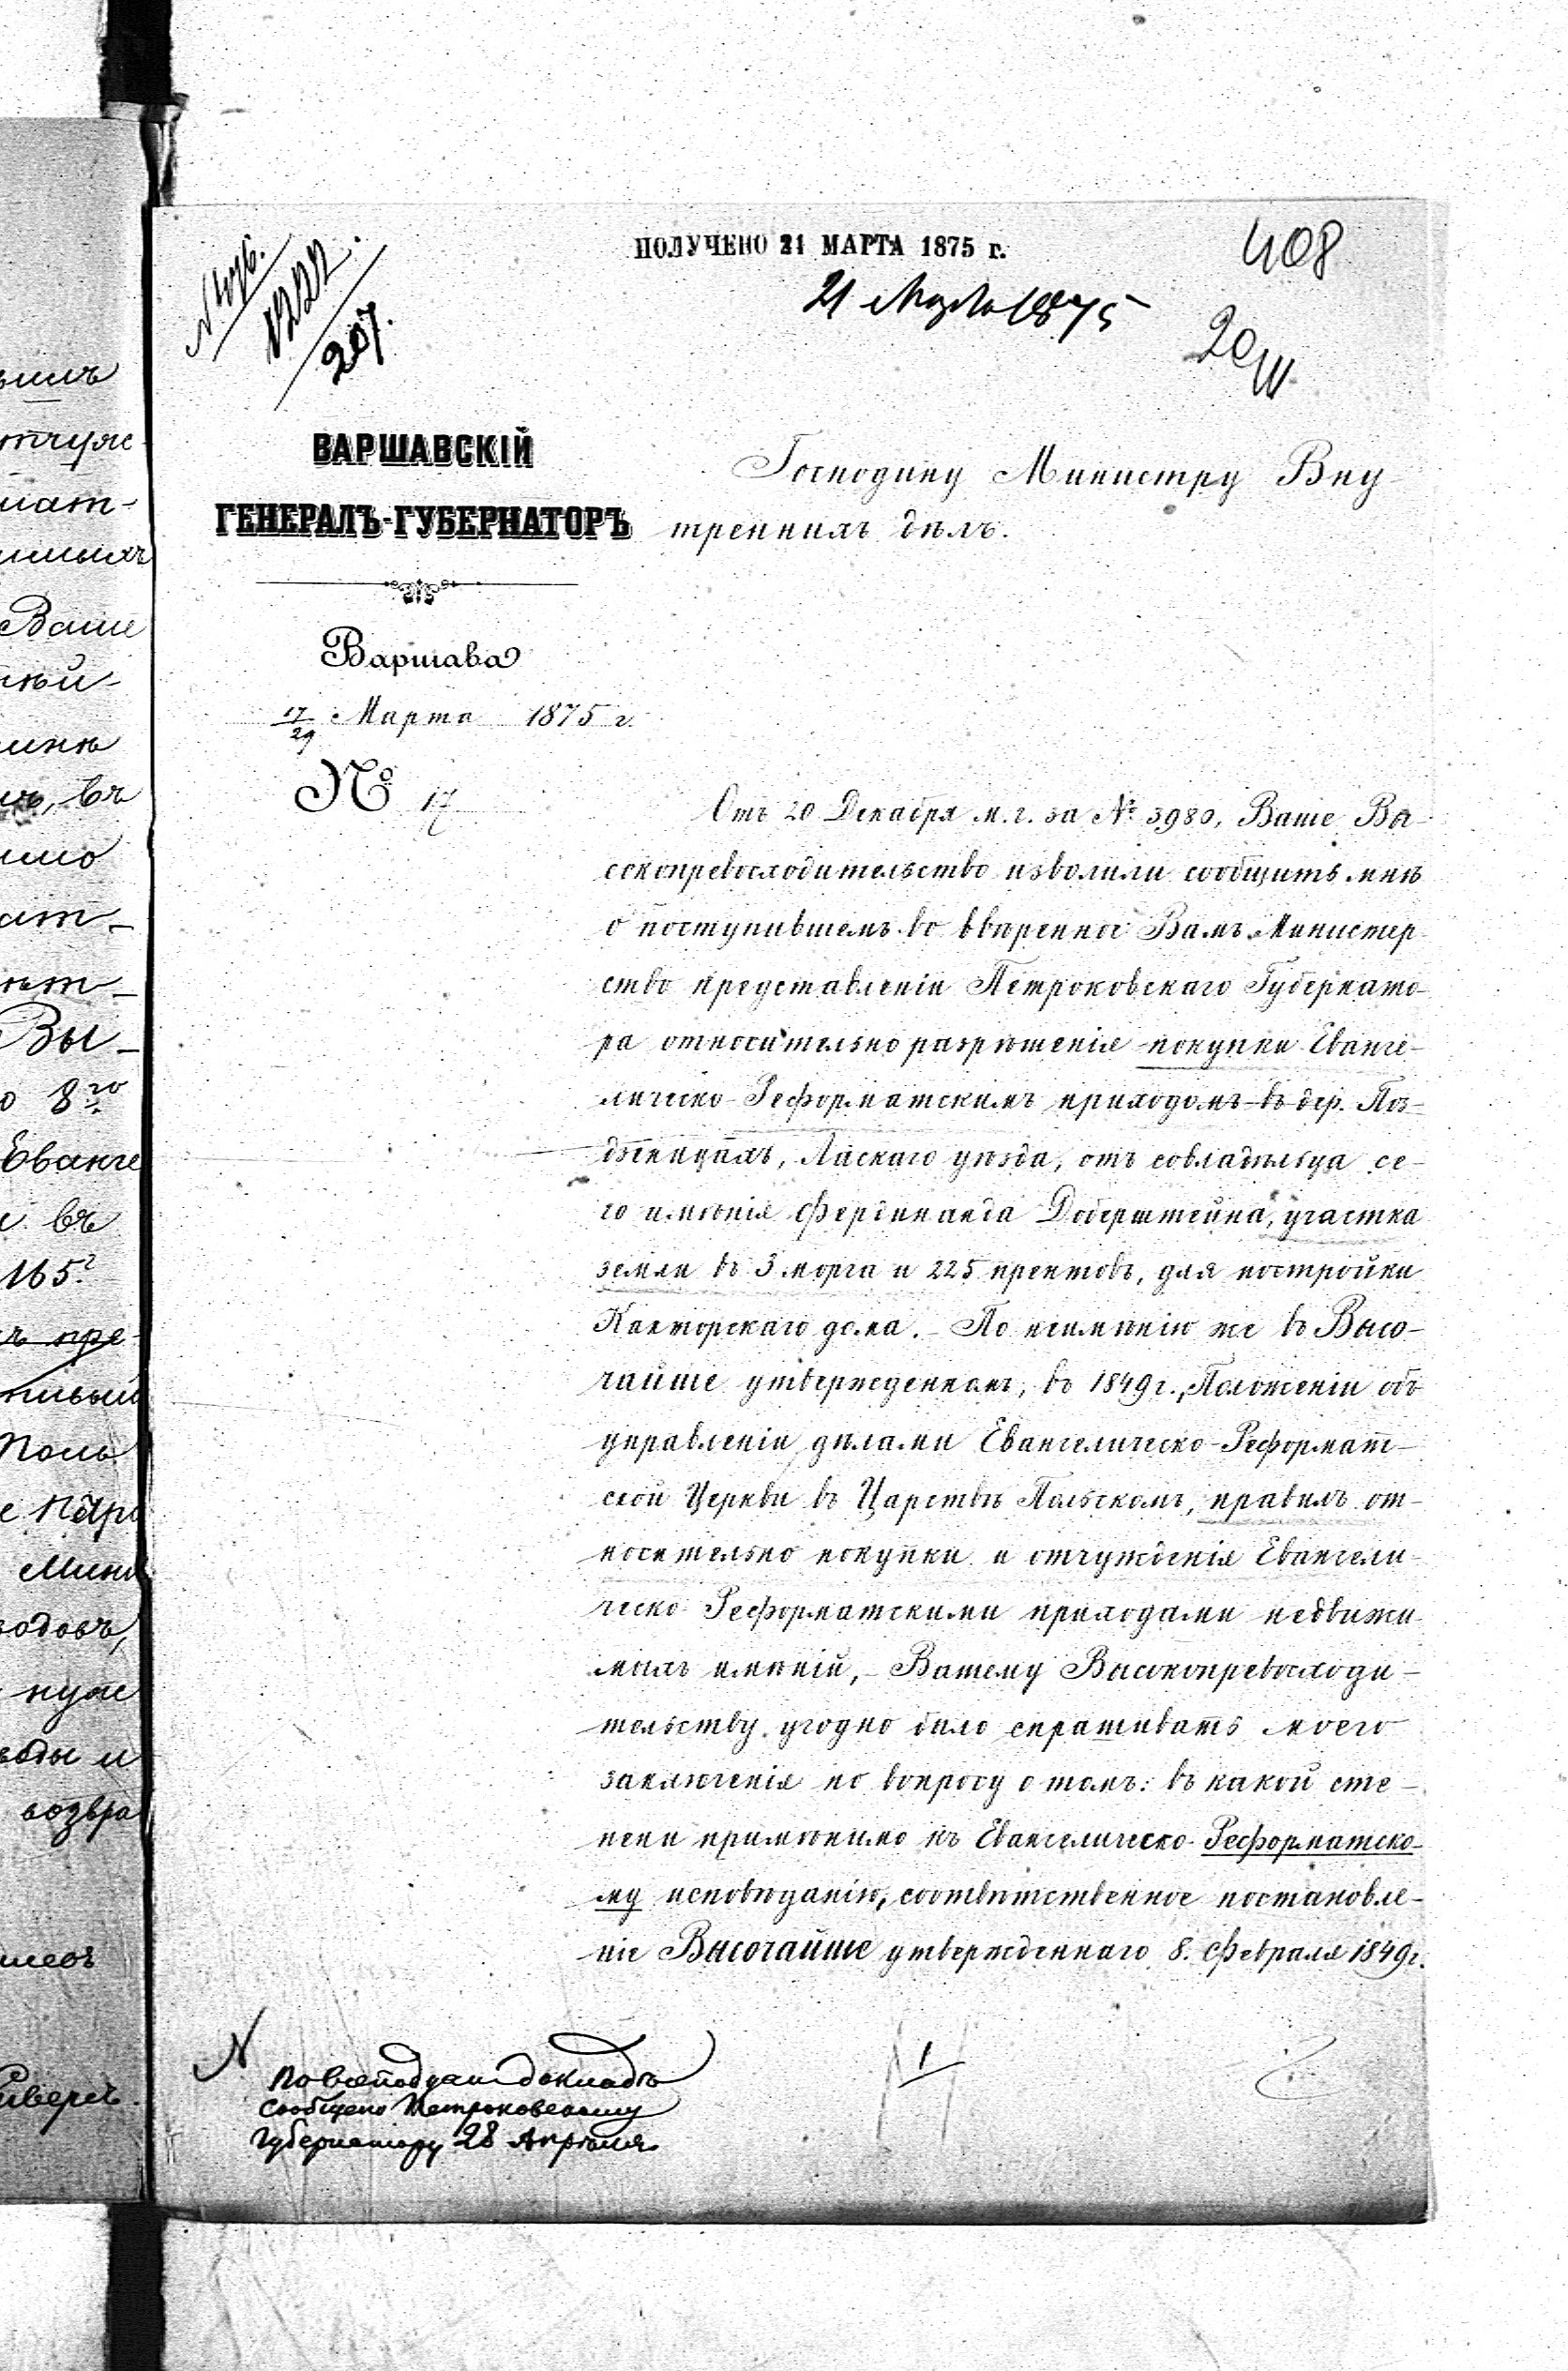 ПОЛУЧЕНО 21 МАРТА 1875 г.
408
21 Марта 1875
20/III
207.
ВАРШАВСКІЙ
ГЕНЕРАЛЪ-ГУБЕРНАТОРЪ
Варшава
17/29 Марта 1875 г.
№ 17
Господину Министру Вну
треннихъ дѣлъ.
Отъ 20 Декабря м.г. за № 3980, Ваше Вы-
сокопревосходительство изволили сообщить мнѣ
о поступившемъ во ввѣренное Вамъ Министер
ство представленіи Петроковскаго Губернато-
ра относительно разрѣшенія покупки Еванге-
лическо-Реформатскимъ приходомъ въ дер. Поз-
дзеницахъ, Ласкаго уѣзда, отъ совладѣльца се-
го имѣнія Фердинанда Доберштейна, участка
земли въ 3 морга и 225 прентовъ, для постройки
Канторскаго дома. – По неимѣнію же въ Высо-
чайше утвержденномъ, въ 1849 г., Положеніи объ
управленіи дѣлами Евангелическо-Реформат-
ской Церкви въ Царствѣ Польскомъ, правилъ от-
носительно покупки и отчужденія Евангели-
ческо-Реформатскими приходами недвижи
мыхъ имѣній, – Вашему Высокопревосходи-
тельству угодно было спрашивать моего
заключенія по вопросу о томъ: въ какой сте-
пени примѣнимо къ Евангелическо-Реформатско-
му исповѣданію, соотвѣтственное постановле-
ніе Высочайше утвержденнаго 8. Февраля 1849 г.
докладъ
сообщено Петроковскому
Губернатору 28 Апрѣля.
1
Ваше
въ
Вы-
о 8го
Еванге
въ
165